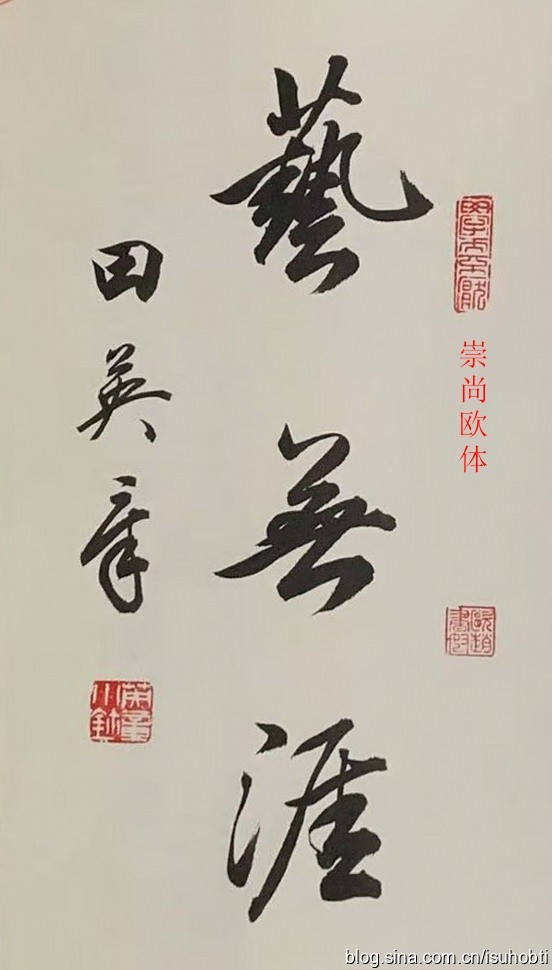 藝無涯
崇尚欧体
田英章
blog.sina.com.cn/isuhobti